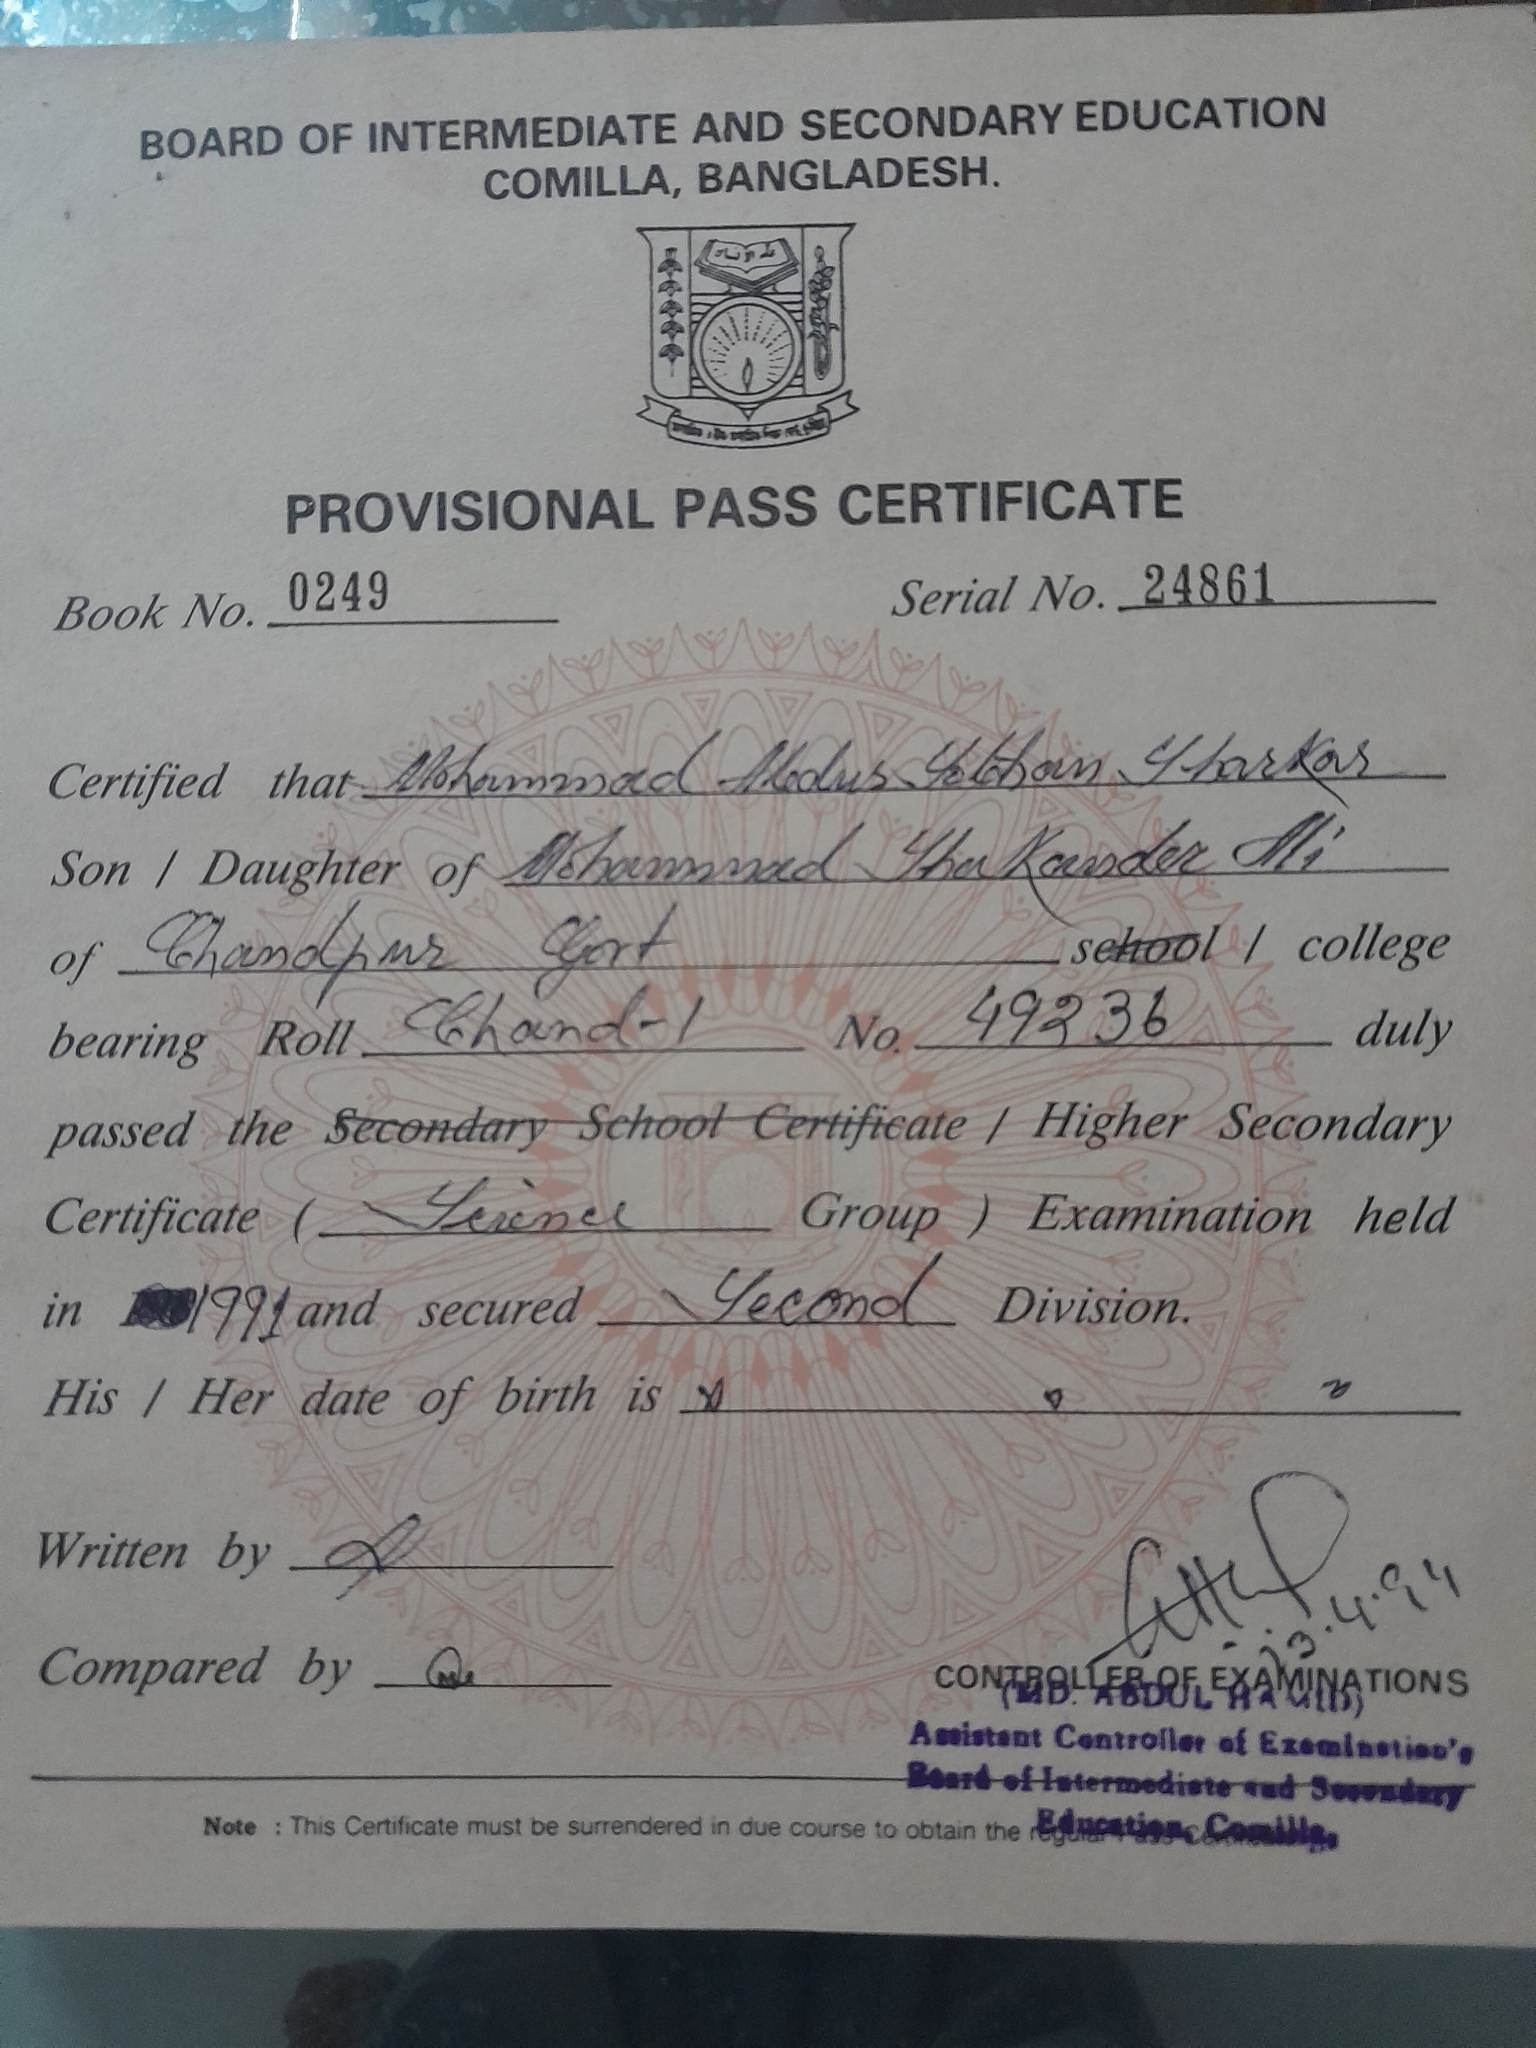 BOARD OF INTERMEDIATE AND SECONDARY EDUCATION
COMILLA, BANGLADESH.
PROVISIONAL PASS CERTIFICATE
Book No. 0249 Serial No. 24861
Certified that Mohammad Abdus Sobhan Sharkar
Son / Daughter of Mohammad Sharkander Ali
of Chandpur Govt school / college
bearing Roll Chand-1 No. 49236 duly
passed the Secondary School Certificate / Higher Secondary
Certificate ( Science Group ) Examination held
in 1991 and secured Second Division.
His / Her date of birth is
Written by
Compared by
13.4.94
CONTROLLER OF EXAMINATIONS
(MD. ABDUL HAMID)
Assistant Controller of Examination's
Board of Intermediate and Secondary
Education, Comilla.
Note : This Certificate must be surrendered in due course to obtain the regular Pass Certificate